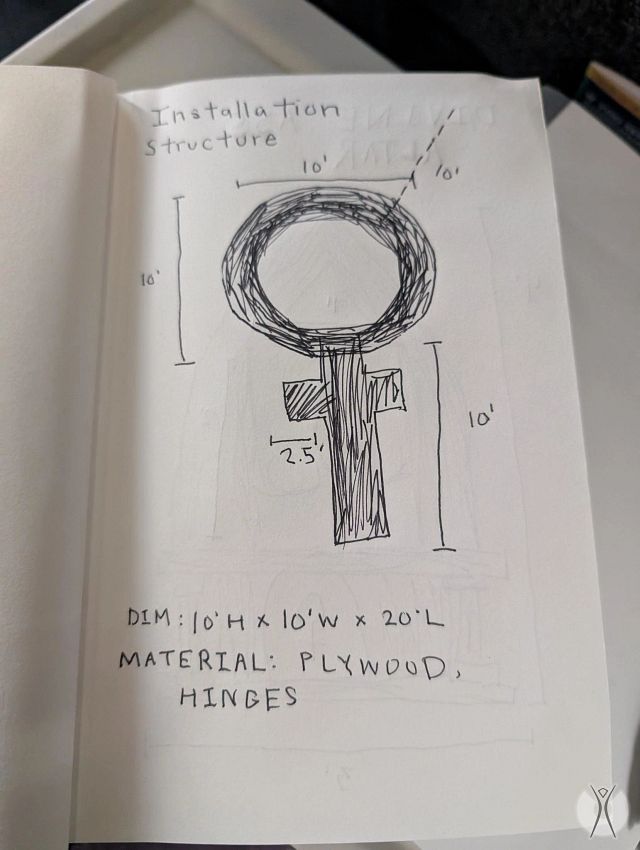 Installation
structure
10'
10'
10'
10'
2.5'
DIM: 10'H x 10'W x 20'L
MATERIAL: PLYWOOD,
HINGES